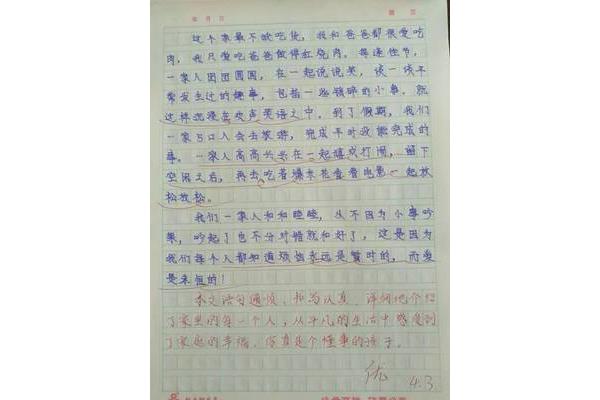 这个家最不缺吃货，我和爸爸都很爱吃
肉，我只爱吃爸爸做得红烧肉。每逢佳节，
一家人团团圆圆，在一起说说笑，谈一谈平
常发生过的趣事，包括一些琐碎的小事。就
这样沉浸在欢声笑语之中。到了假期，我们
一家5口人会去旅游，完成平时没能完成的
事。一家人高高兴兴在一起嬉戏打闹，留下
空闲之后，再去吃着爆米花看着电影一起放
松放松。
我们一家人和和睦睦，从不因为小事吵
架，吵起了也不分对错就和好了，这是因为
我们每个人都知道烦恼永远是暂时的，而爱
是永恒的！
本文语句通顺、书写认真，详细地介绍
了家里的每一个人，从平凡的生活中感受到
了家庭的幸福，你真是个懂事的孩子。
优 4.3